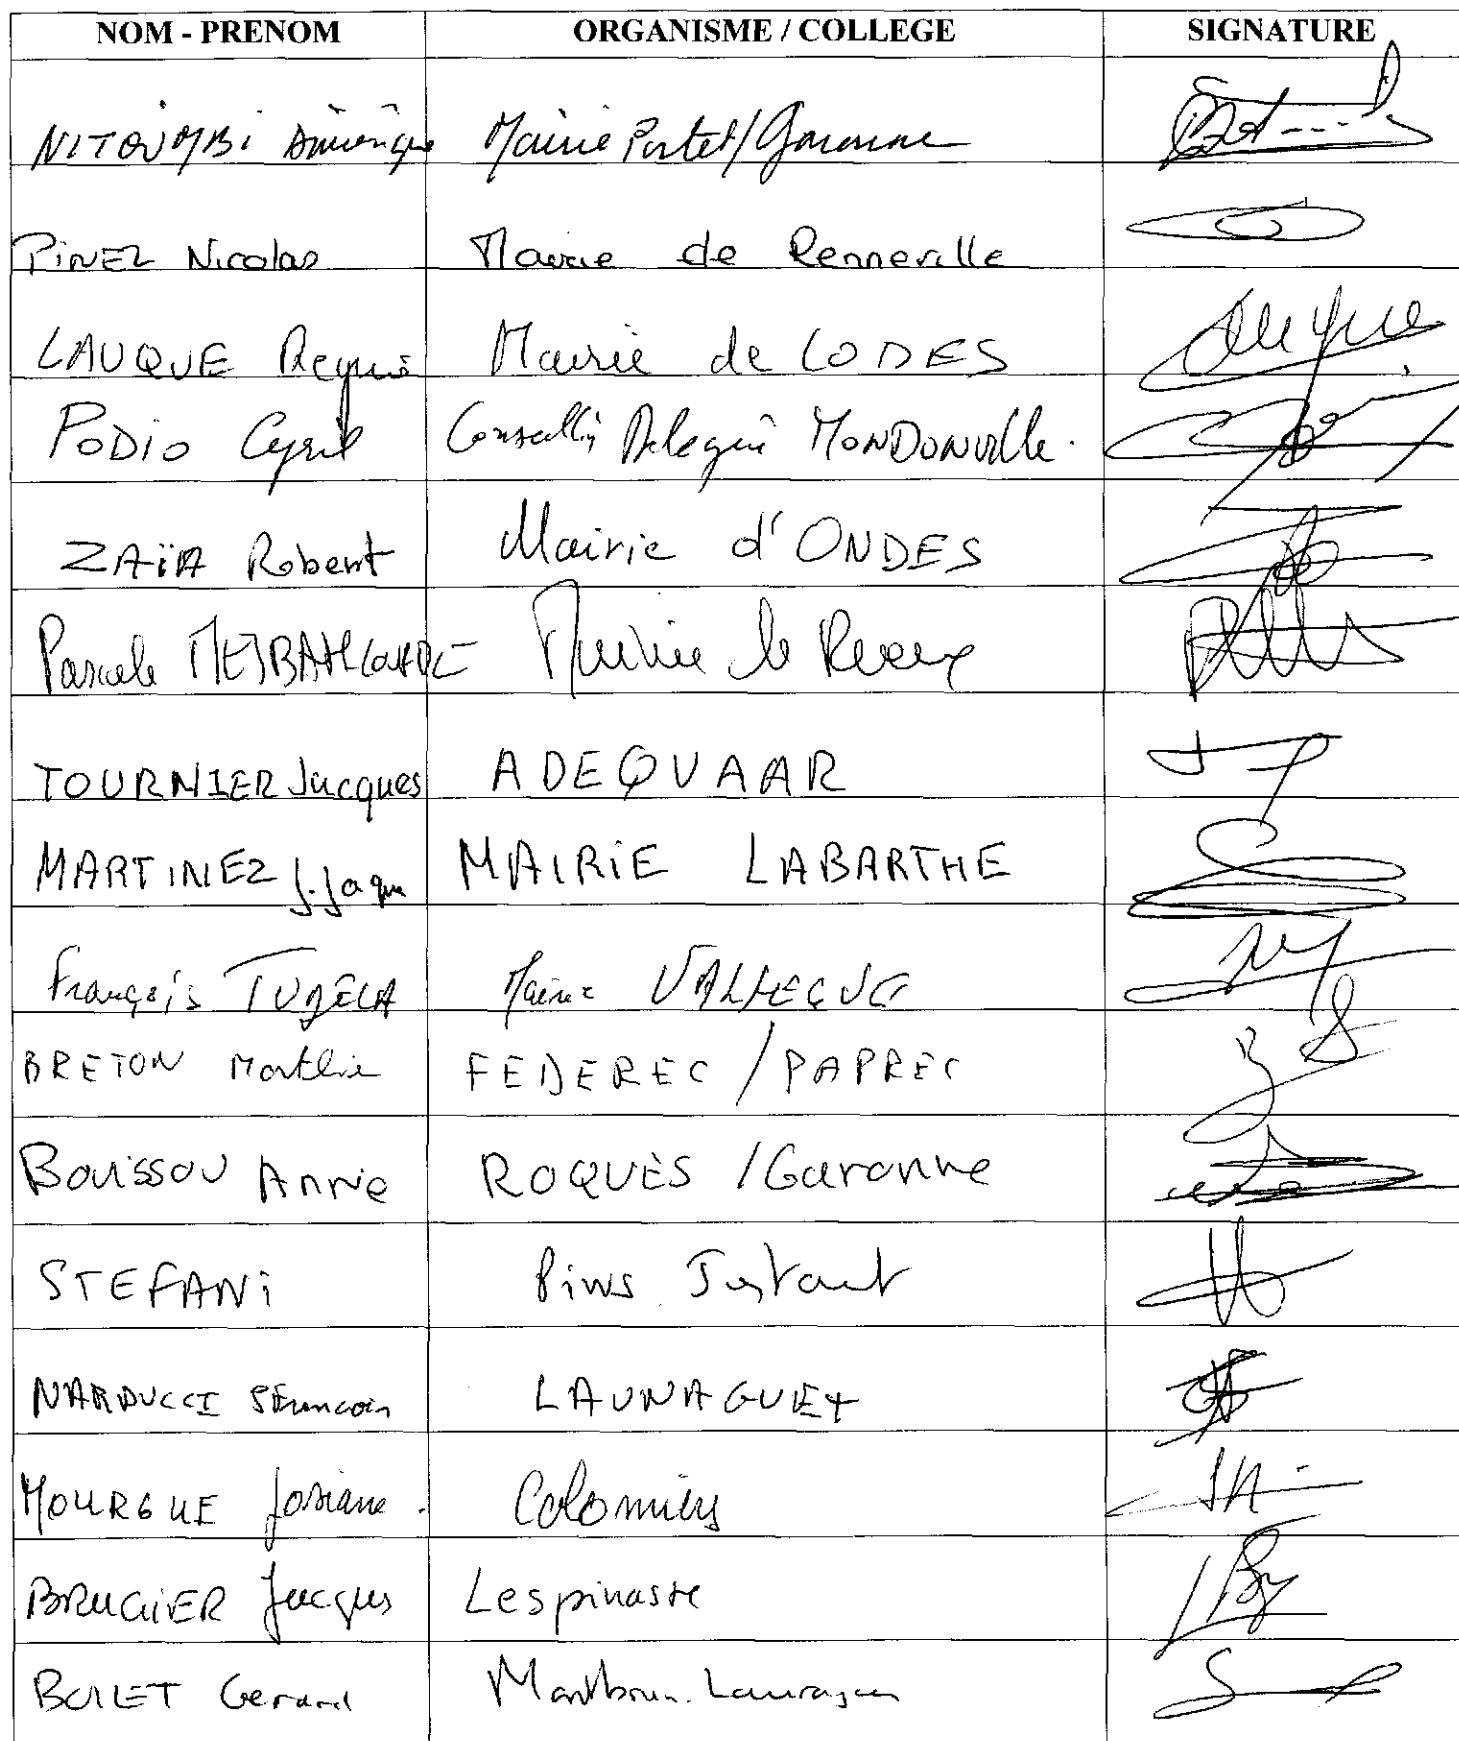 NOM - PRENOM ORGANISME / COLLEGE SIGNATURE
NITOUMBI Mairie Portet/Garonne
PINEL Nicolas Mairie de Renneville
LAUQUE Mairie de LODES
PODIO Cyril MONDONville.
ZAÏA Robert Mairie d'ONDES
Pascale Mairie
TOURNIER Jacques ADEQVAAR
MARTINEZ J. Jaque MAIRIE LABARTHE
François TUJÉLA Mairie
BRETON FEDEREC / PAPREC
BOUISSOU Annie ROQUES /Garonne
STEFANI Pins Justaut
NARDUCCI LAUNAGUET
MOURGUE Josiane. Colomiers
BRUGIER Jacques Lespinasse
Gerard Montbrun. Lauragais